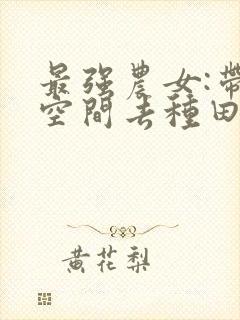 最强農女:帶
空間去種田
黄花梨